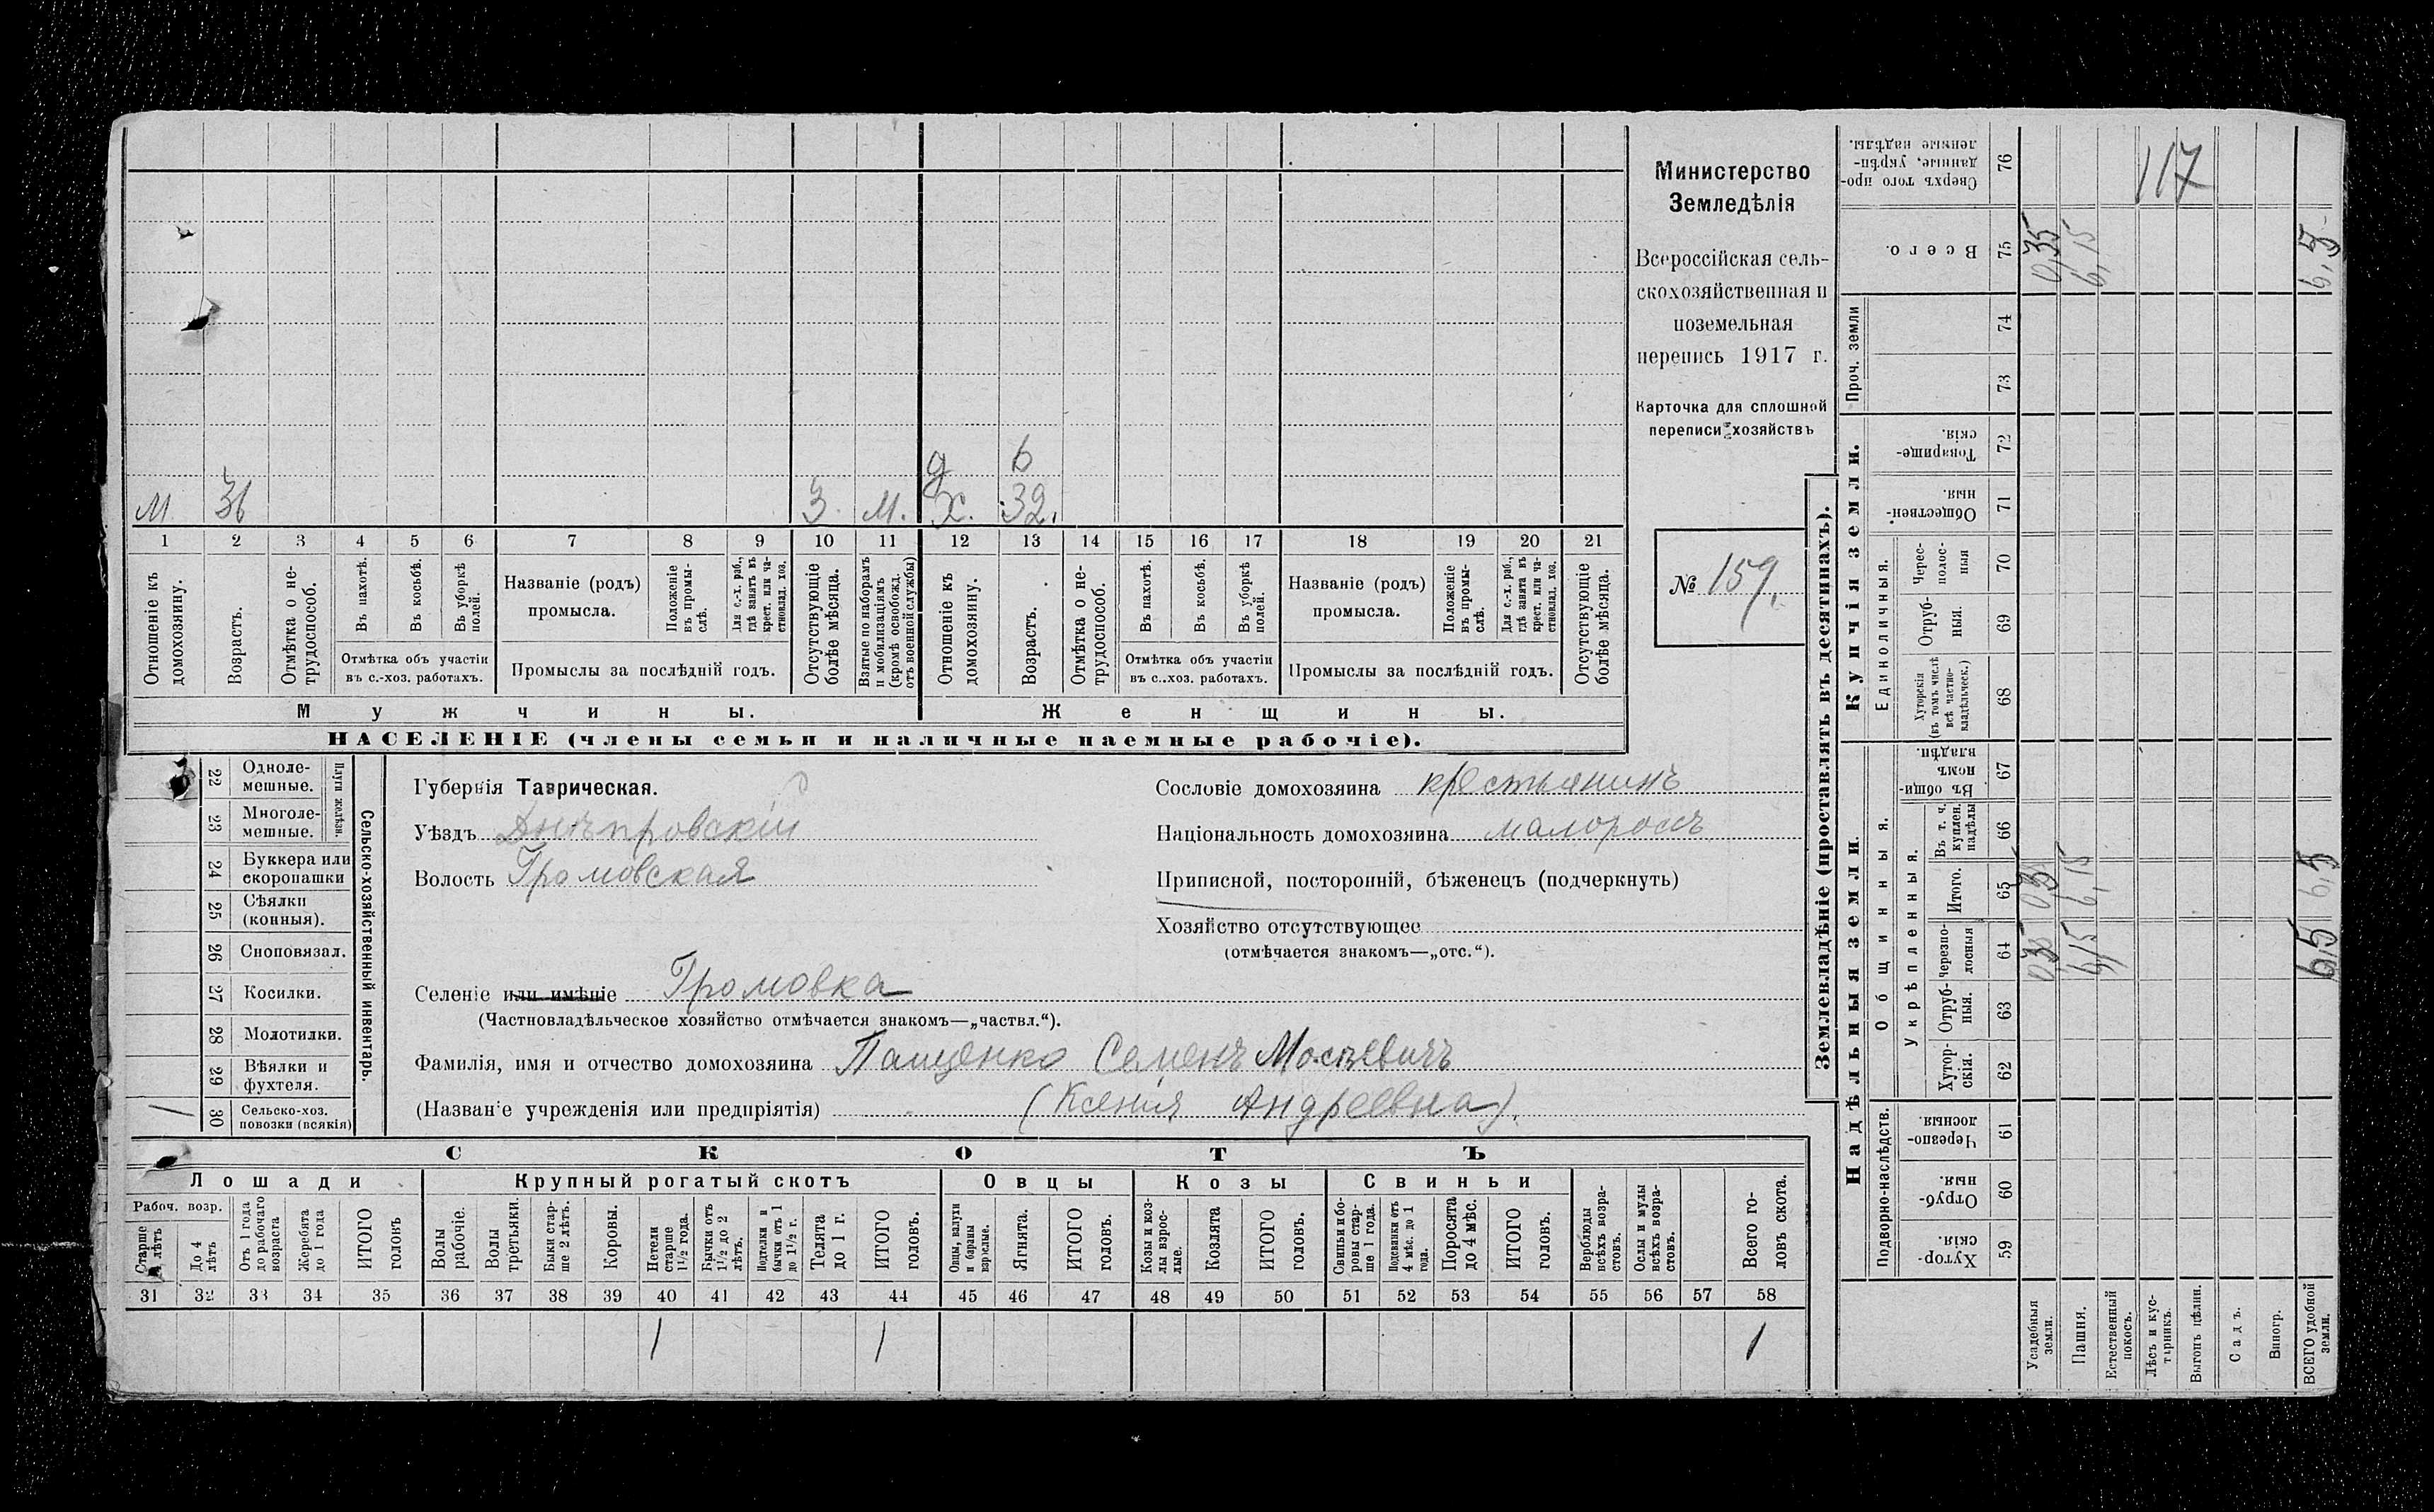 Министерство
Земледѣлія
Всероссійская сель-
скохозяйственная и
поземельная
перепись 1917 г.
Карточка для сплошной
переписи хозяйствъ
№ 159.
д 6
М 36 3. М. Х. 32.
1 2 3 4 5 6 7 8 9 10 11 12 13 14 15 16 17 18 19 20 21
Отношеніе къ домохозяину.
Возрастъ.
Отмѣтка о не-трудоспособ.
Въ пахотѣ.
Въ косьбѣ.
Въ уборкѣ полей.
Отмѣтка объ участіи въ с.-хоз. работахъ.
Названіе (родъ) промысла.
Положеніе въ промы-слѣ.
Для с.-х. раб., гдѣ занятъ въ крест. или ча-стновлад. хоз.
Промыслы за послѣдній годъ.
Отсутствующіе болѣе мѣсяца.
Взятые по наборамъ и мобилизаціямъ (кромѣ освобожд. отъ военной службы)
Отношеніе къ домохозяину.
Возрастъ.
Отмѣтка о не-трудоспособ.
Въ пахотѣ.
Въ косьбѣ.
Въ уборкѣ полей.
Отмѣтка объ участіи въ с..хоз. работахъ.
Названіе (родъ) промысла.
Положеніе въ промы-слѣ.
Для с.-х. раб., гдѣ занята въ крест. или ча-стновлад. хоз.
Промыслы за послѣдній годъ.
Отсутствующіе болѣе мѣсяца.
Мужчины. Женщины.
НАСЕЛЕНІЕ (члены семьи и наличные наемные рабочіе).
Сельско-хозяйственный инвентарь.
Плуги желѣзн.
22 Одноле-мешные.
23 Многоле-мешные.
24 Буккера или скоропашки
25 Сѣялки (конныя).
26 Сноповязал.
27 Косилки.
28 Молотилки.
29 Вѣялки и фухтеля.
30 Сельско-хоз. повозки (всякія) 1
Губернія Таврическая.
Уѣздъ Днѣпровскій
Волость Громовская
Сословіе домохозяина крестьянинъ
Національность домохозяина малороссъ
Приписной, посторонній, бѣженецъ (подчеркнуть)
Хозяйство отсутствующее
(отмѣчается знакомъ—„отс.“).
Селеніе или имѣніе Громовка
(Частновладѣльческое хозяйство отмѣчается знакомъ—„частвл.“).
Фамилія, имя и отчество домохозяина Пащенко Семенъ Мосѣевичъ
(Названіе учрежденія или предпріятія) (Ксенія Андреевна).
СКОТЪ
Лошади Крупный рогатый скотъ Овцы Козы Свиньи
Рабоч. возр.
Старше 4 лѣтъ
До 4 лѣтъ
Отъ 1 года до рабочаго возраста
Жеребята до 1 года
ИТОГО головъ
Волы рабочіе.
Волы третьяки.
Быки стар-ше 2 лѣтъ.
Коровы.
Нетели старше 1½ года.
Бычки отъ 1½ до 2 лѣтъ.
Подтелки и бычки отъ 1 до 1½ г.
Телята до 1 г.
ИТОГО головъ.
Овцы, валухи и бараны взрослые.
Ягнята.
ИТОГО головъ.
Козы и коз-лы взрос-лые.
Козлята
ИТОГО головъ.
Свиньи и бо-ровы стар-ше 1 года.
Подсвинки отъ 4 мѣс. до 1 года.
Поросята до 4 мѣс.
ИТОГО головъ.
Верблюды всѣхъ возра-стовъ.
Ослы и мулы всѣхъ возра-стовъ.
Всего го-ловъ скота.
31 32 33 34 35 36 37 38 39 40 41 42 43 44 45 46 47 48 49 50 51 52 53 54 55 56 57 58
1 1 1
Землевладѣніе (проставлять въ десятинахъ).
Надѣльныя земли. Купчія земли. Проч. земли
Подворно-наслѣдств.
Общинныя.
Укрѣпленныя.
Единоличныя.
59 Хутор-скія.
60 Отруб-ныя.
61 Черезпо-лосныя
62 Хутор-скія.
63 Отруб-ныя.
64 черезпо-лосныя
65 Итого.
66 Въ т. ч. куплен. надѣлы
67 Въ общи-номъ владѣн.
68 Хуторскія (въ томъ числѣ всѣ частно-владѣльческ.)
69 Отруб-ныя.
70 Черес-полос-ныя
71 Обществен-ныя.
72 Товарище-скія.
73
74
75 Всего.
76 Сверхъ того про-данные, укрѣп-ленные надѣлы.
Усадебныя земли. 0,35 0,35 0,35
Пашня. 6,15 6,15 6,15
Естественный покосъ.
Лѣсъ и кус-тарникъ.
Выгонъ цѣлин.
Садъ.
Виногр.
ВСЕГО удобной земли. 6,5 6,5 6,5
117